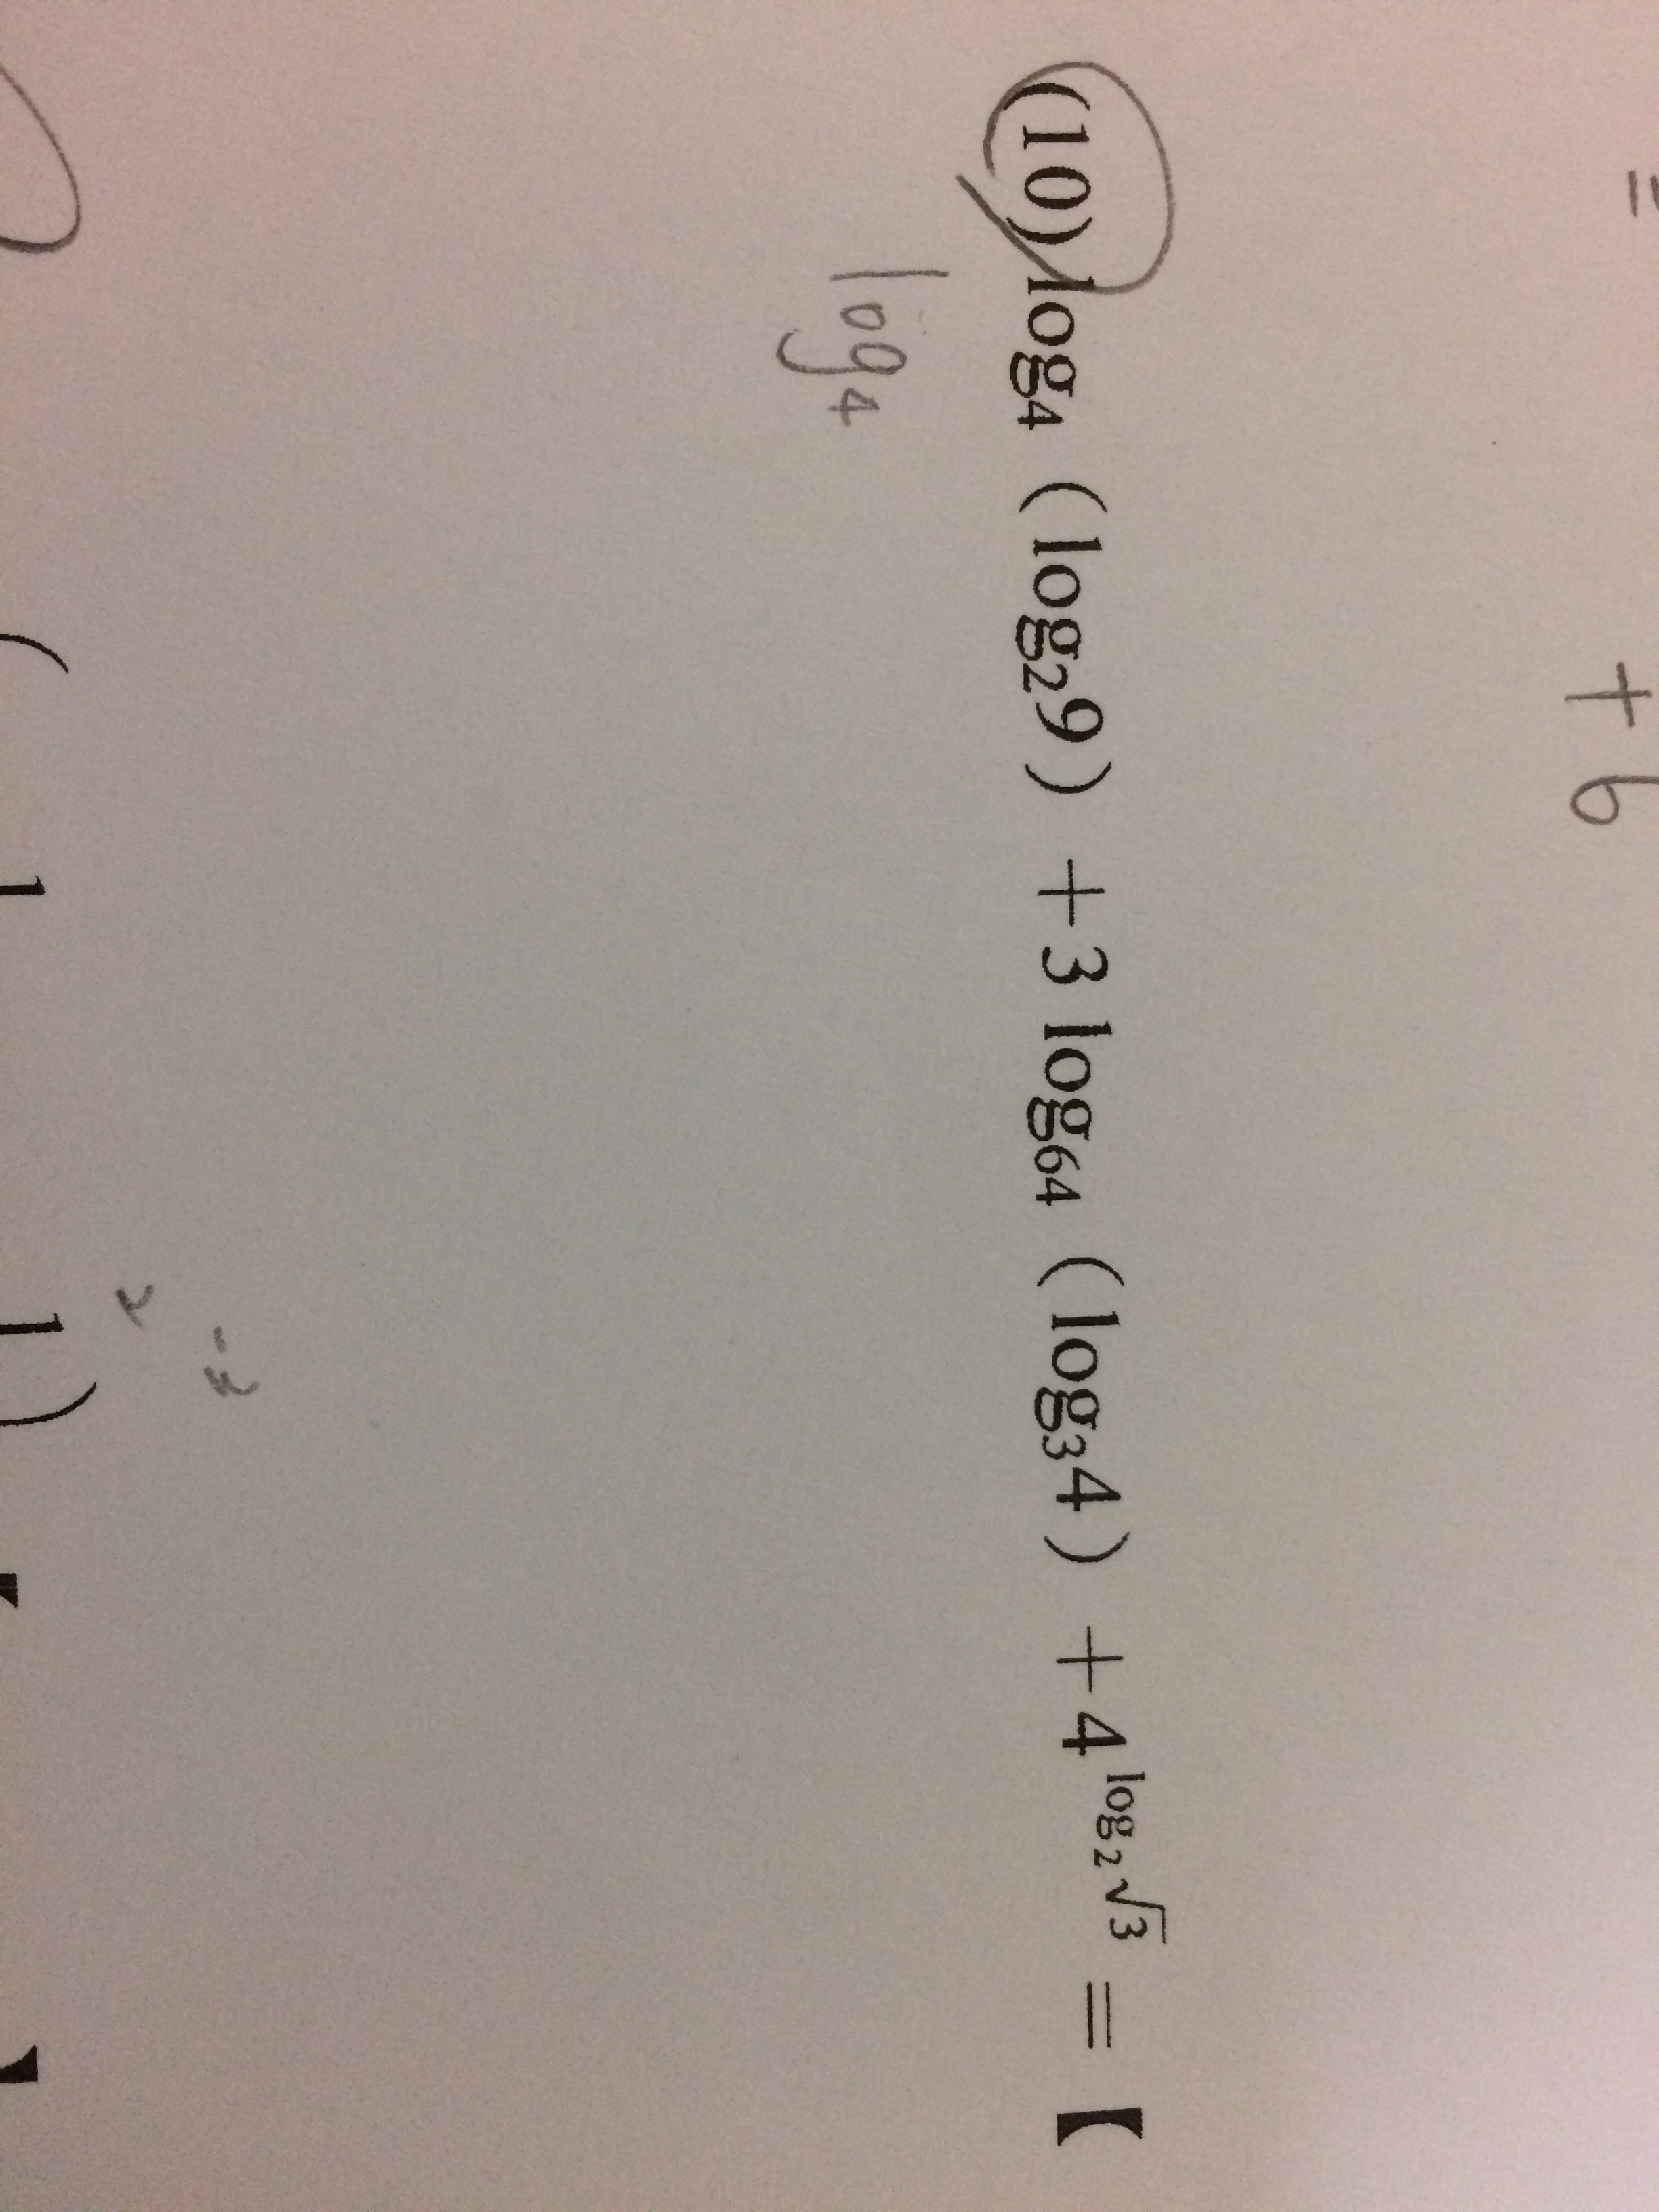 = + 6
(10) log₄ (log₂9) + 3 log₆₄ (log₃4) + 4^(log₂√3) = 【
log₄